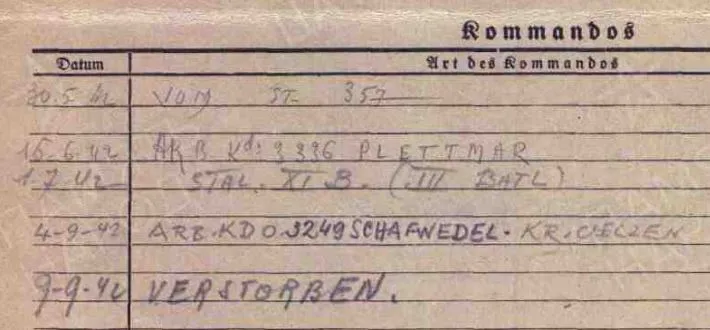 Kommandos
Datum Art des Kommandos
30.5.42 VOM ST. 357
15.6.42 ARB Kdo: 9396 PLETTMAR
1.7.42 STAL. XI B. (III BATL)
4-9-42 ARB.KDO.3249 SCHAFWEDEL. KR. UELZEN
9-9-42 VERSTORBEN.